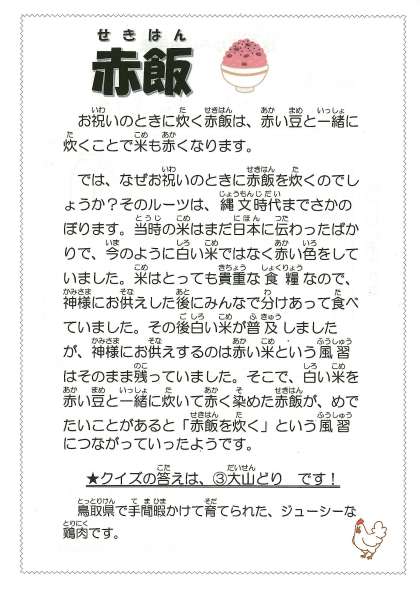 せきはん
赤飯
お祝いのときに炊く赤飯は、赤い豆と一緒に
炊くことで米も赤くなります。
では、なぜお祝いのときに赤飯を炊くのでし
ょうか？そのルーツは、縄文時代までさかの
ぼります。当時の米はまだ日本に伝わったばか
りで、今のように白い米ではなく赤い色をして
いました。米はとっても貴重な食糧なので、
神様にお供えした後にみんなで分けあって食べ
ていました。その後白い米が普及しました
が、神様にお供えするのは赤い米という風習
はそのまま残っていました。そこで、白い米を
赤い豆と一緒に炊いて赤く染めた赤飯が、めで
たいことがあると「赤飯を炊く」という風習
につながっていったようです。
★クイズの答えは、③大山どり です！
鳥取県で手間暇かけて育てられた、ジューシーな
鶏肉です。